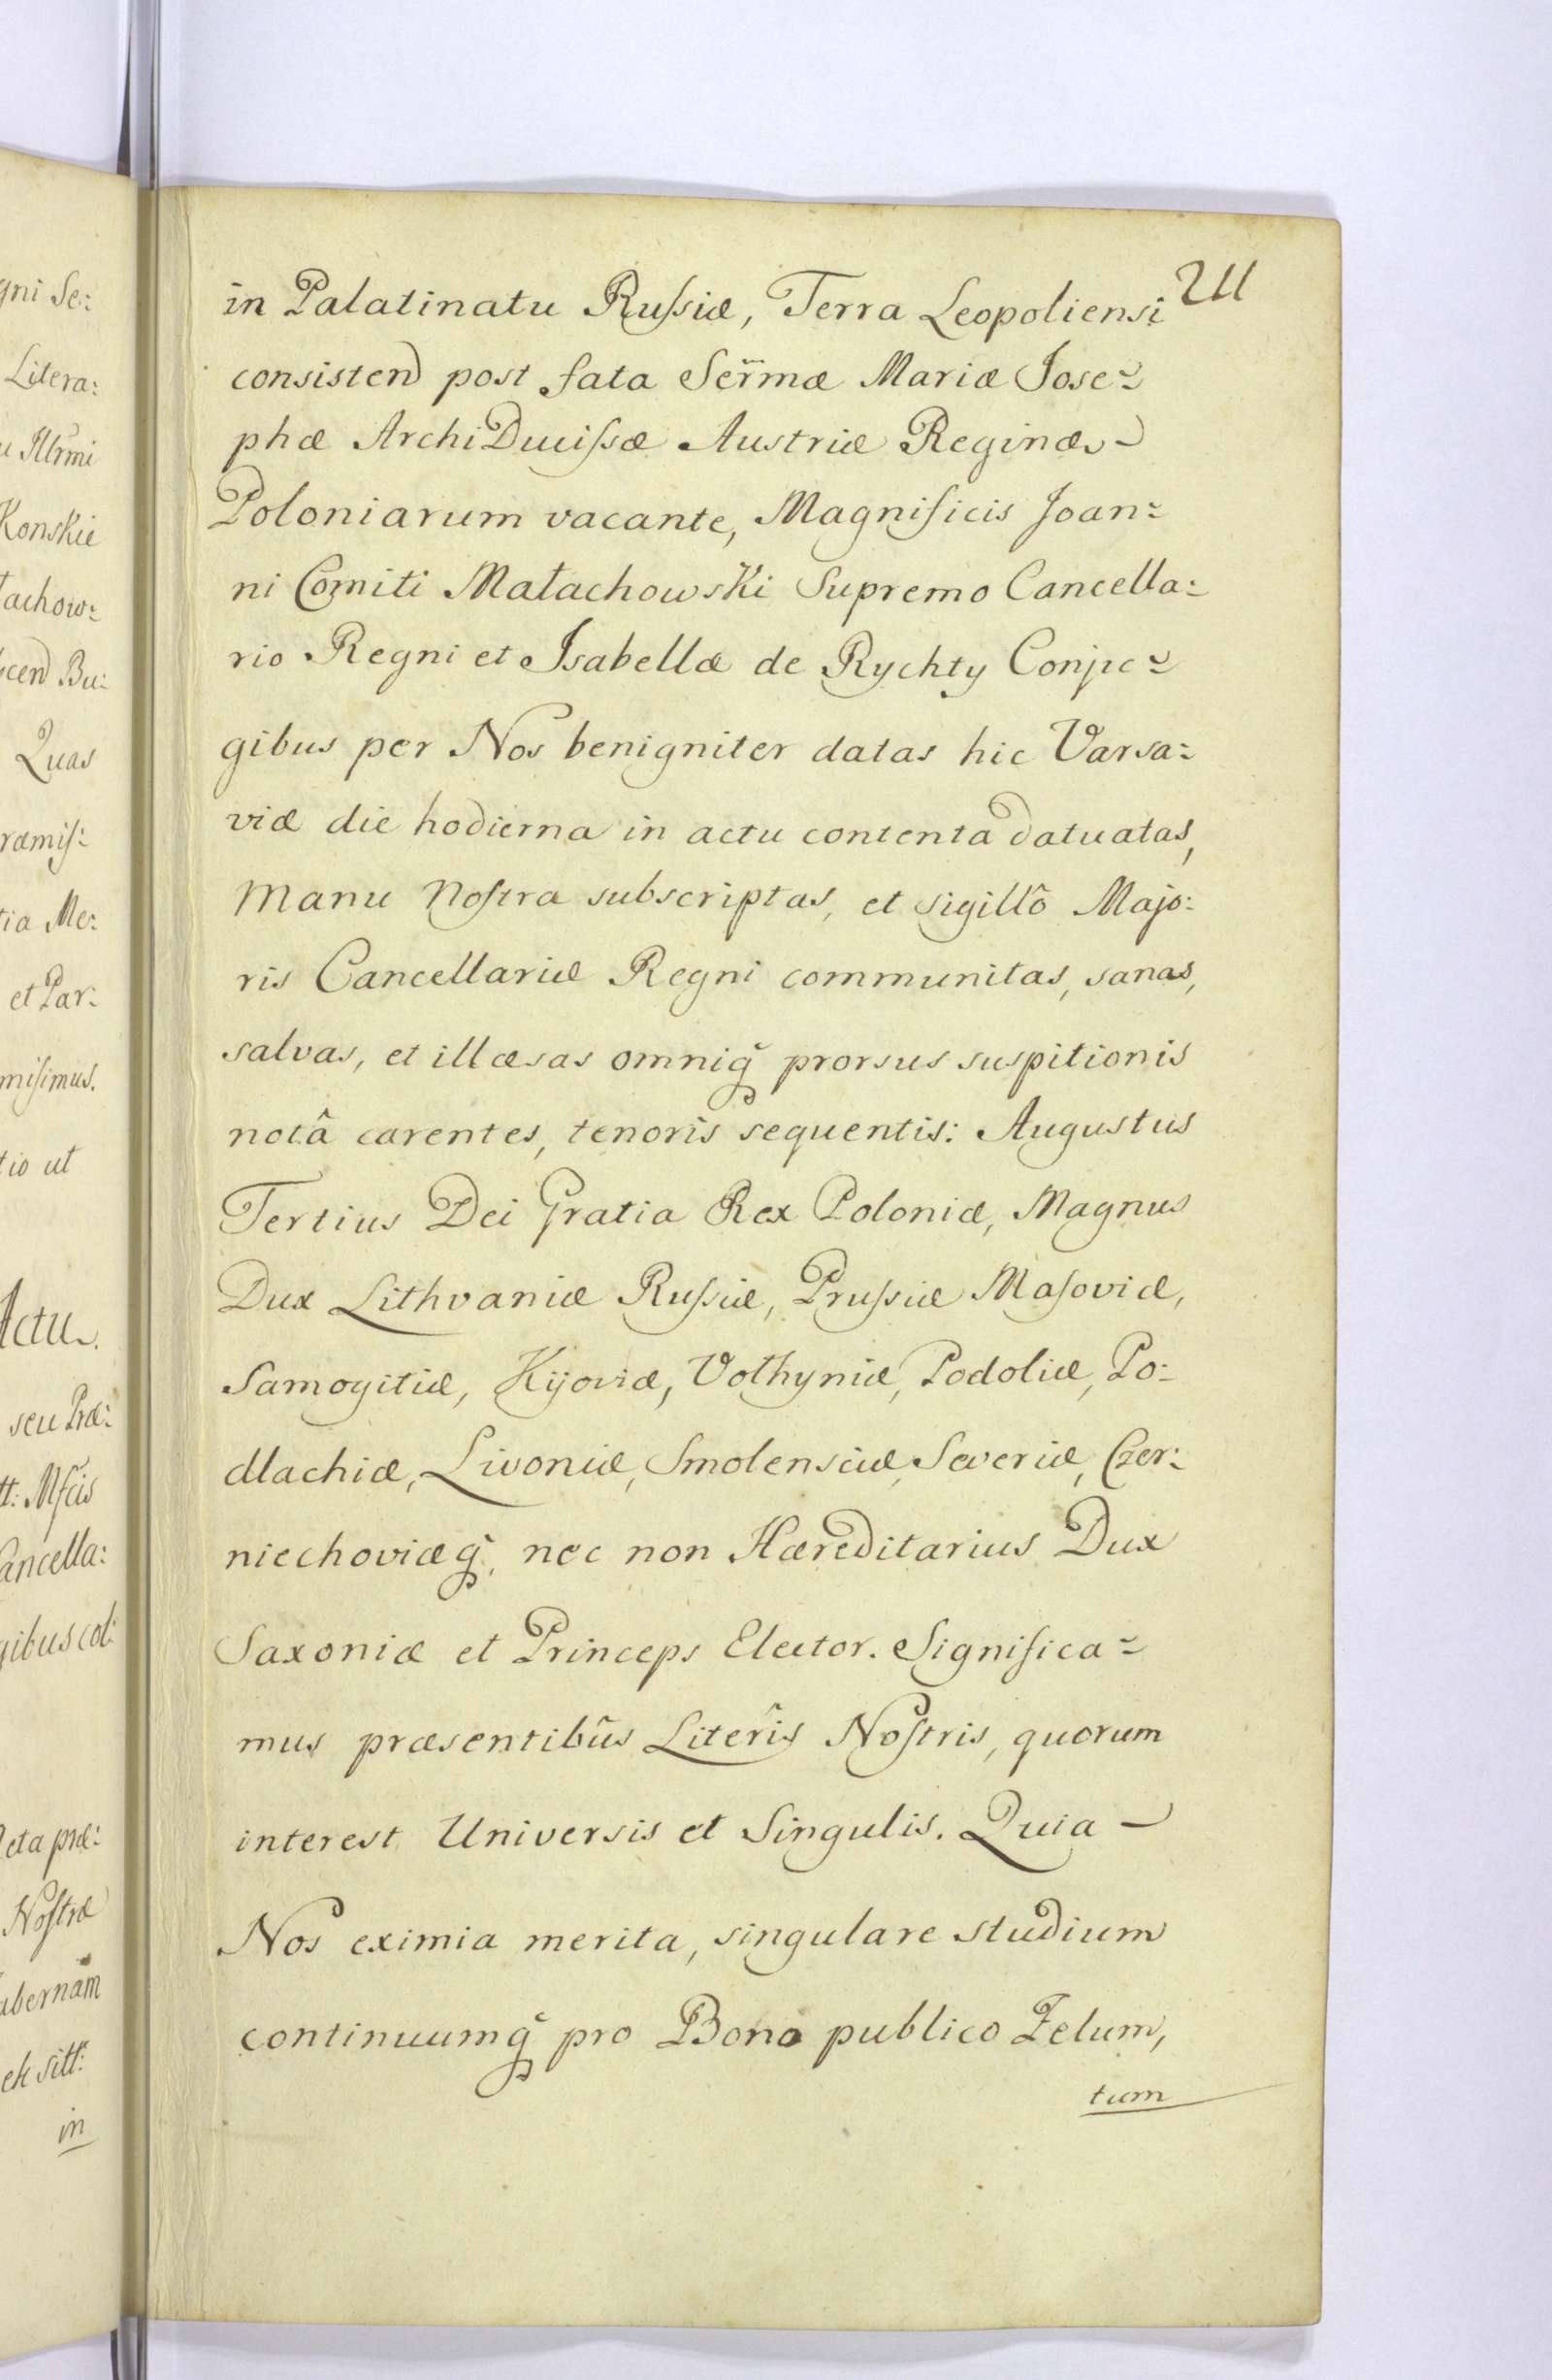 gni Se:
Litera:
u Illrmi
Konskie
łachow:
cend Bu:
Quas
ræmis:
tia Me:
et Par:
misimus.
tio ut
Actu
seu Præ:
tt: Mfcis
Cancella:
gibus col:
Acta præ:
Nostræ
abernam
ek sitt:
in
211
in Palatinatu Russiæ, Terra Leopoliensi
consistend post fata Serm̈æ Mariæ Jose=
phæ ArchiDucissæ Austriæ Reginæ
Poloniarum vacante, Magnificis Joan=
ni Comiti Małachowski Supremo Cancella=
rio Regni et Isabellæ de Rychty Conju=
gibus per Nos benigniter datas hic Varsa=
viæ die hodierna in actu contenta datuatas,
Manu Nostra subscriptas, et sigillô Majo:
ris Cancellariæ Regni communitas, sanas,
salvas, et illæsas omniq̃ prorsus suspitionis
notâ carentes, tenoris sequentis: Augustus
Tertius Dei Gratia Rex Poloniæ, Magnus
Dux Lithvaniæ Russiæ, Prussiæ Masoviæ,
Samogitiæ, Kijoviæ, Volhyniæ, Podoliæ, Po:
dlachiæ, Livoniæ, Smolensciæ, Severiæ, Czer:
niechoviæq̃, nec non Hæreditarius Dux
Saxoniæ et Princeps Elector. Significa=
mus præsentibûs Literîs Nostris, quorum
interest Universis et Singulis. Quia
Nos eximia merita, singulare studium
continuumq̃ pro Bono publico Zelum,
tum